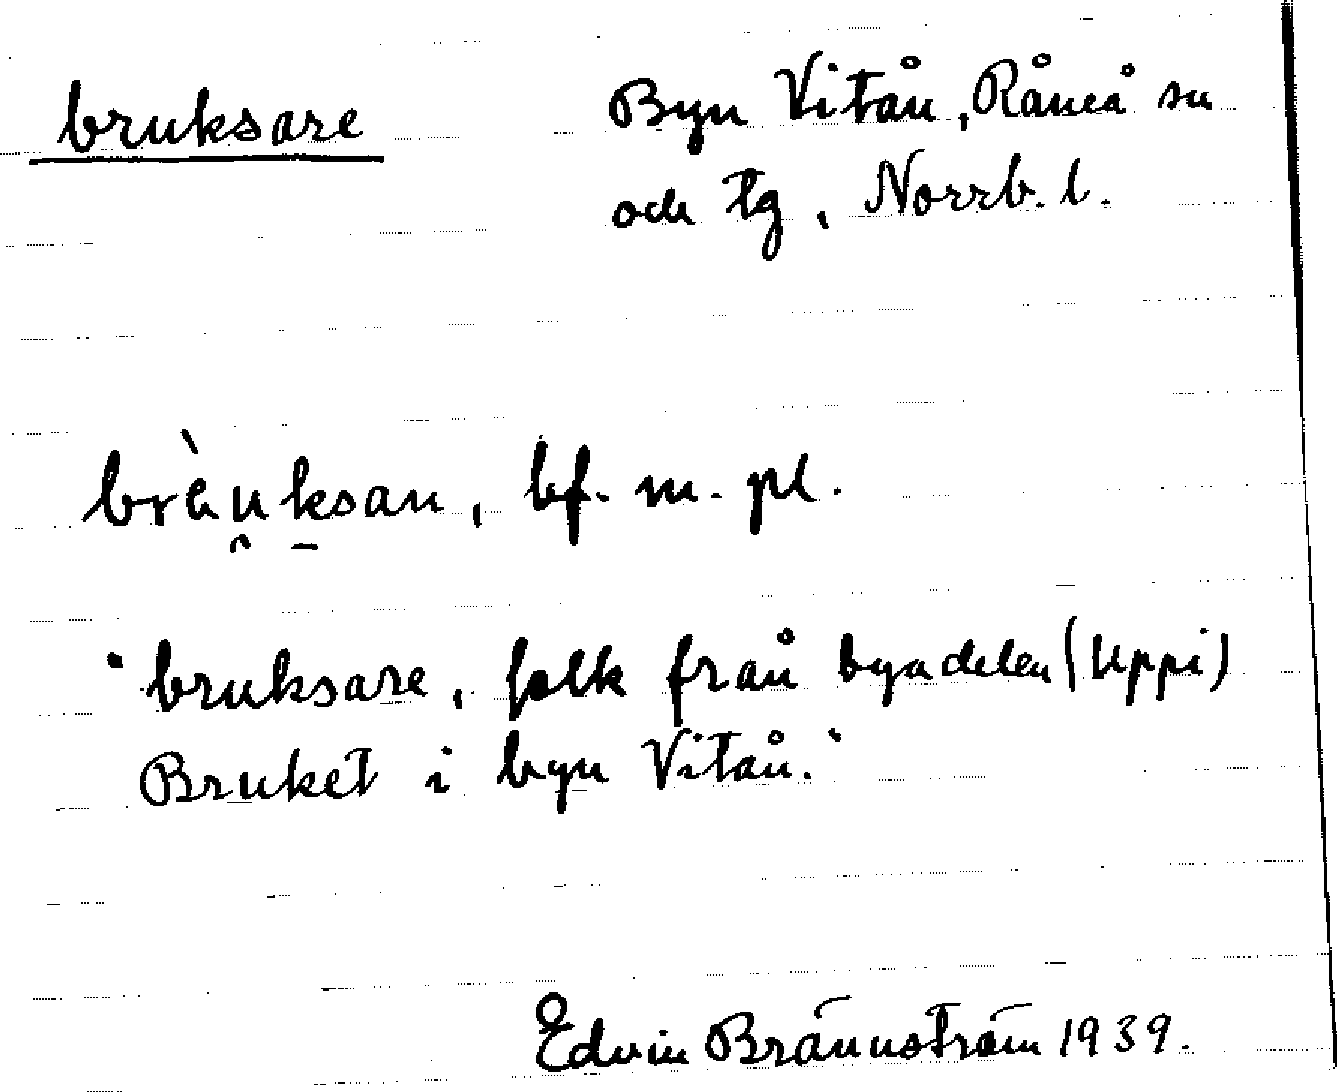 bruksare
Byn Vitån, Råneå sn
och tg, Norrb. l.
brèu̯k̠san, bf. m. pl.
"bruksare, folk från byadelen (Uppi)
Bruket i byn Vitån."
Edvin Brännström 1939.